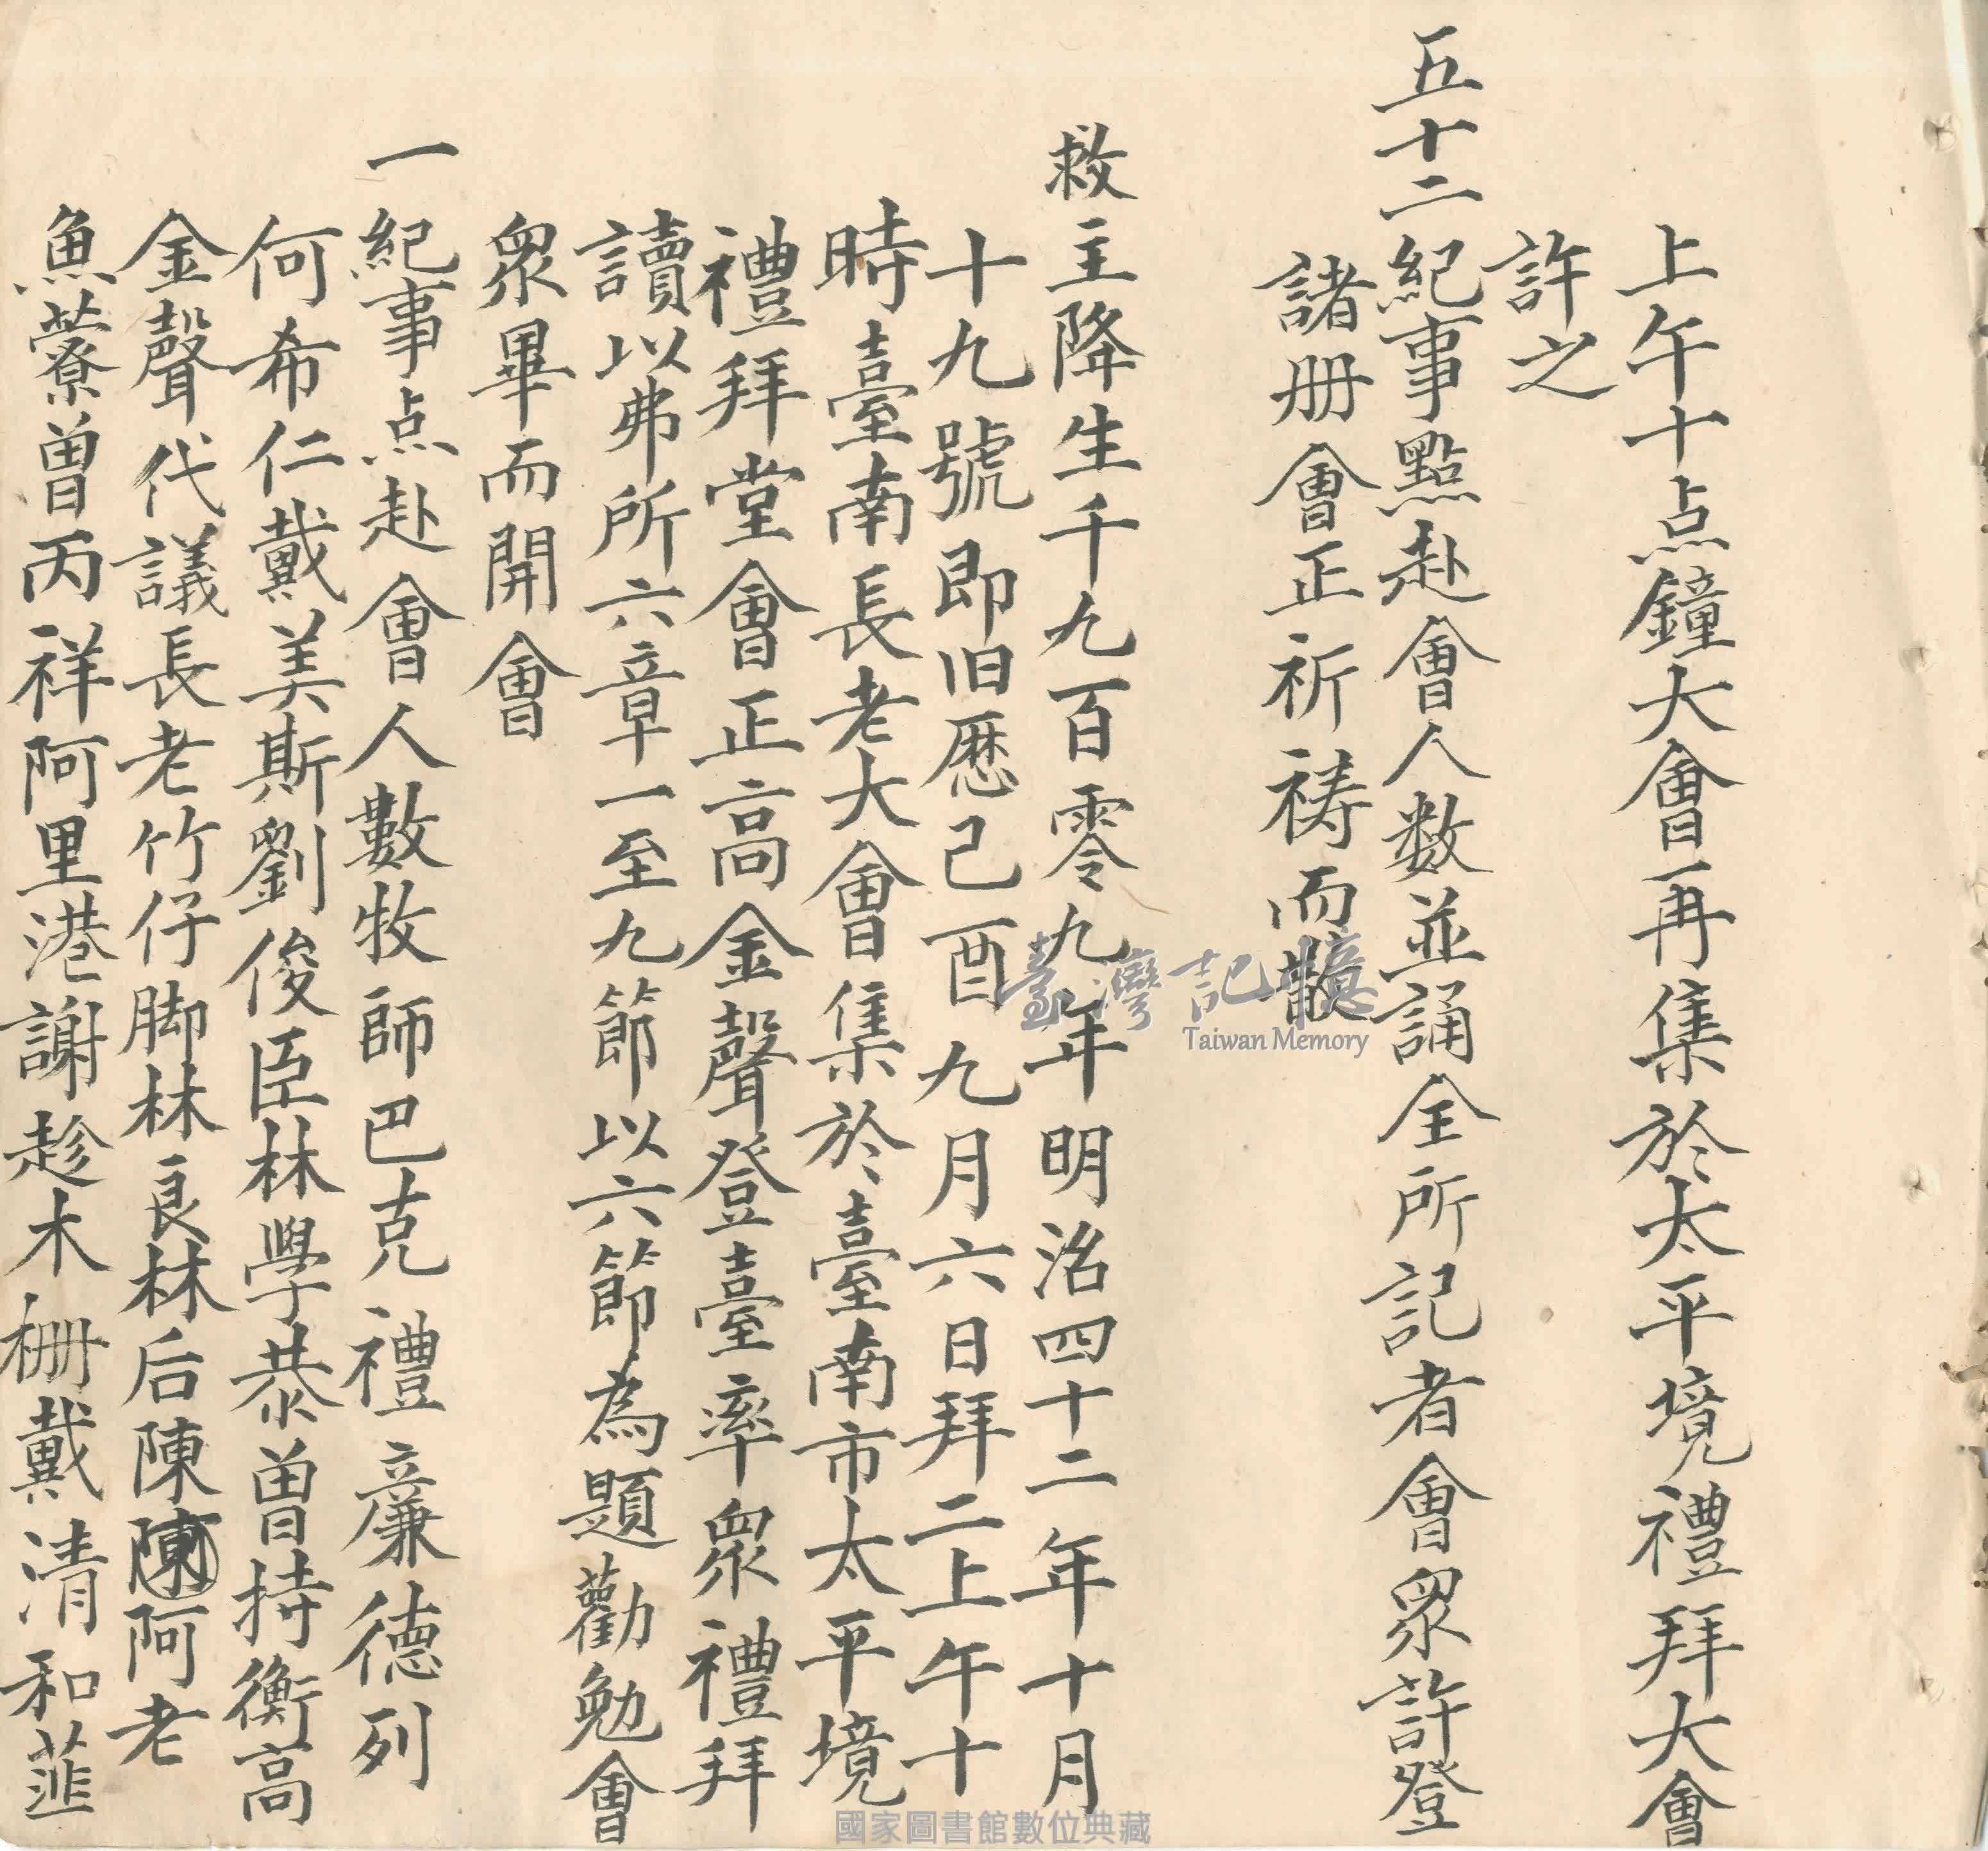 上午十点鐘大會再集於太平境禮拜大會
許之
五十二紀事點赴會人数並誦仝所記者會眾許登
諸册會正祈祷而散
救主降生千九百零九年明治四十二年十月
十九號即旧厯己酉九月六日拜二上午十
時臺南長老大會集於臺南市太平境
禮拜堂會正高金聲登臺率眾禮拜
讀以弗所六章一至九節以六節為題勸勉會
眾畢而開會
一紀事点赴會人數牧師巴克禮廉德列
何希仁戴美斯劉俊臣林學恭曾持衡高
金聲代議長老竹仔脚林良林后陳陳阿老
魚藔曾丙祥阿里港謝趁木栅戴清和韮
臺灣記憶
Taiwan Memory
國家圖書館數位典藏